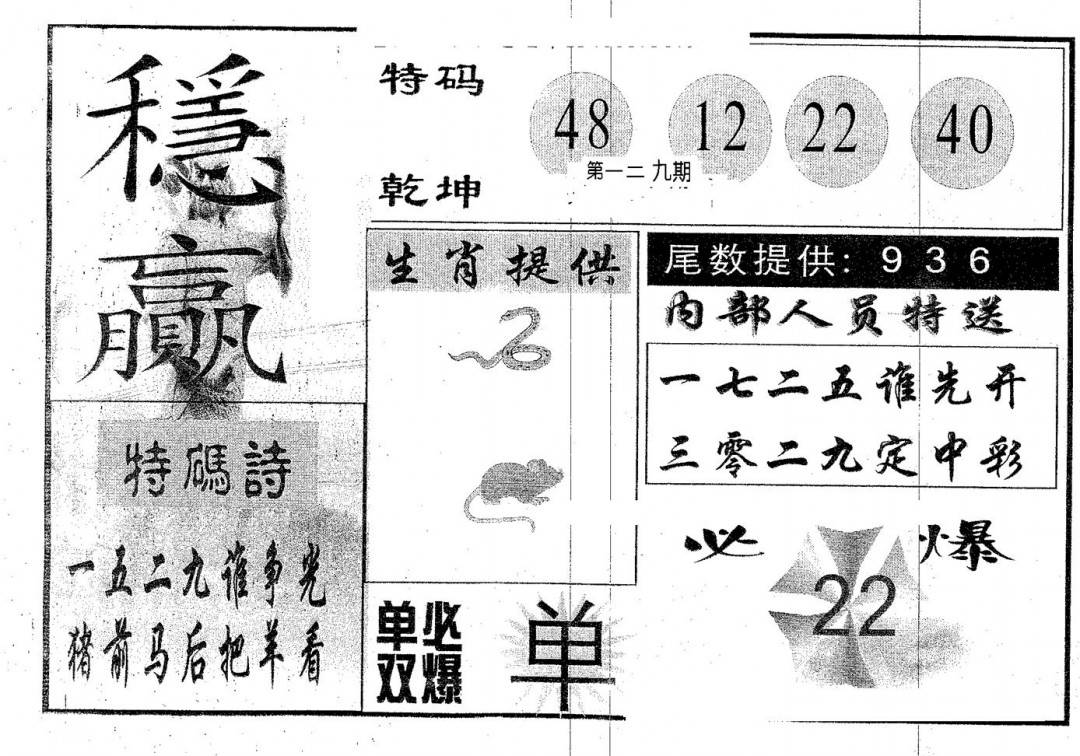 穩
贏
特码
乾坤
48 12 22 40
第一二九期
生肖提供
尾数提供: 9 3 6
内部人员特送
一七二五谁先开
三零二九定中彩
特碼詩
一五二九谁争光
猪前马后把羊看
单必
双爆
单
必 爆
22